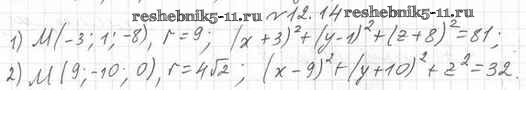 reshebnik5-11.ru №12.14 reshebnik5-11.ru
1) M(-3; 1; -8), r=9; (x+3)²+(y-1)²+(z+8)²=81;
2) M(9; -10; 0), r=4√2; (x-9)²+(y+10)²+z²=32.